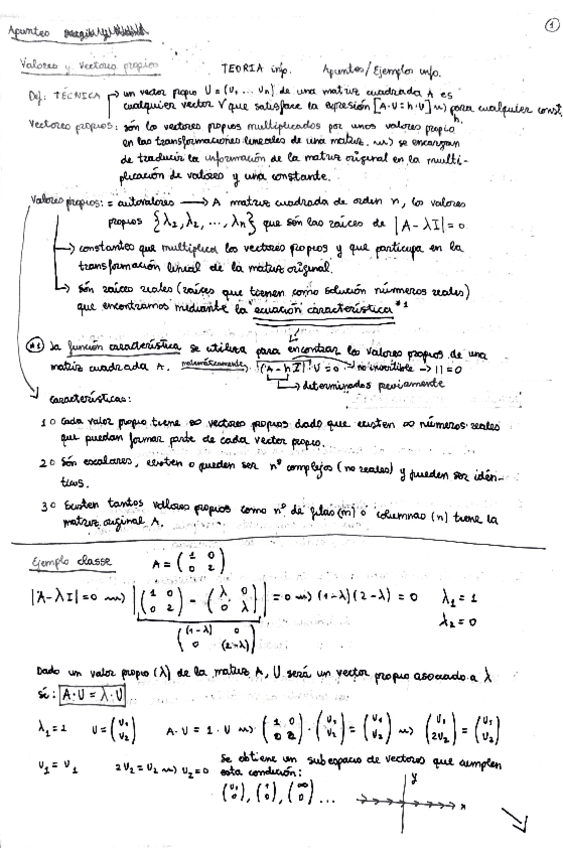 ①
Apuntes
Valores y vectores propios TEORIA info. Apuntes/Ejemplos info.
Def: TÉCNICA → un vector propio U = (U₁ ... Uₙ) de una matriz cuadrada A es
cualquier vector V que satisface la expresión [A·U = h·U] para cualquier const. h.
Vectores propios: són los vectores propios multiplicados por unos valores propio
en las transformaciones lineales de una matriz. se encargan
de traducir la información de la matriz original en la multi-
plicación de valores y una constante.
Valores propios: = autovalores → A matriz cuadrada de orden n, los valores
propios {λ₁, λ₂, ..., λₙ} que són las raíces de |A - λI| = 0
→ constantes que multiplica los vectores propios y que participa en la
transformación lineal de la matriz original.
→ són raíces reales (raíces que tienen como solución números reales)
que encontramos mediante la "ecuación característica" *1
*1 la función característica se utiliza para encontrar los valores propios de una
matriz cuadrada A. matemáticamente |(A - hI)|·U = 0 → no invertible → || = 0
→ determinados previamente
Características:
1º Cada valor propio tiene ∞ vectores propios dado que existen ∞ números reales
que puedan formar parte de cada vector propio.
2º Són escalares, existen o pueden ser nº complejos (no reales) y pueden ser idén-
ticos.
3º Existen tantos valores propios como nº de filas (m) o columnas (n) tiene la
matriz original A.
Ejemplo classe A = (1 0 / 0 2)
|A - λI| = 0 |(1 0 / 0 2) - (λ 0 / 0 λ)| = 0 (1-λ)(2-λ) = 0 λ₁ = 1
λ₂ = 0
((1-λ) 0 / 0 (2-λ))
Dado un valor propio (λ) de la matriz A, U será un vector propio asociado a λ
si: A·U = λ·U
λ₁ = 1 U = (U₁ / U₂) A·U = 1·U (1 0 / 0 2)·(U₁ / U₂) = (U₁ / U₂) (U₁ / 2U₂) = (U₁ / U₂)
U₁ = U₁ 2U₂ = U₂ U₂ = 0 Se obtiene un subespacio de vectores que cumplen
esta condición:
(U₁ / 0), (1 / 0), (∞ / 0) ... y x